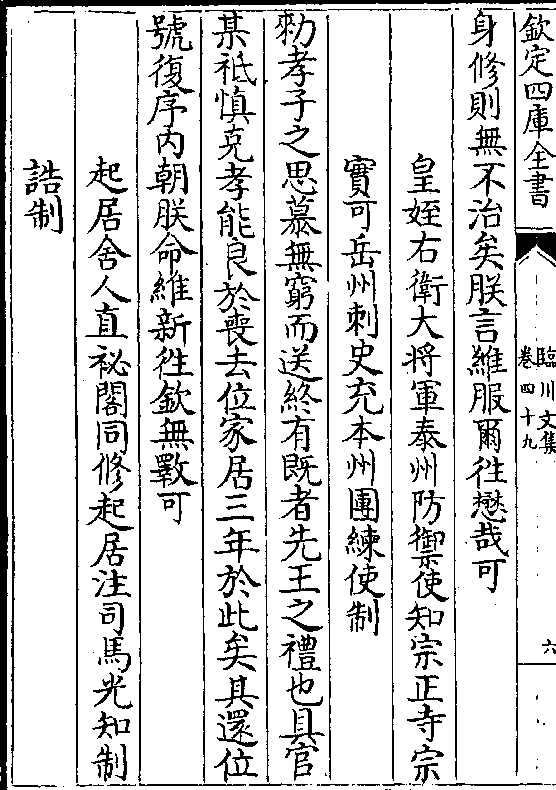 欽定四庫全書
臨川文集
卷四十九
六
身修則無不治矣朕言維服爾徃懋哉可
皇姪右衛大将軍泰州防禦使知宗正寺宗
實可岳州刺史充本州團練使制
勑孝子之思慕無窮而送終有既者先王之禮也具官
某祗慎克孝能良於喪去位家居三年於此矣其還位
號復序内朝朕命維新徃欽無斁可
起居舍人直祕閣同修起居注司馬光知制
誥制